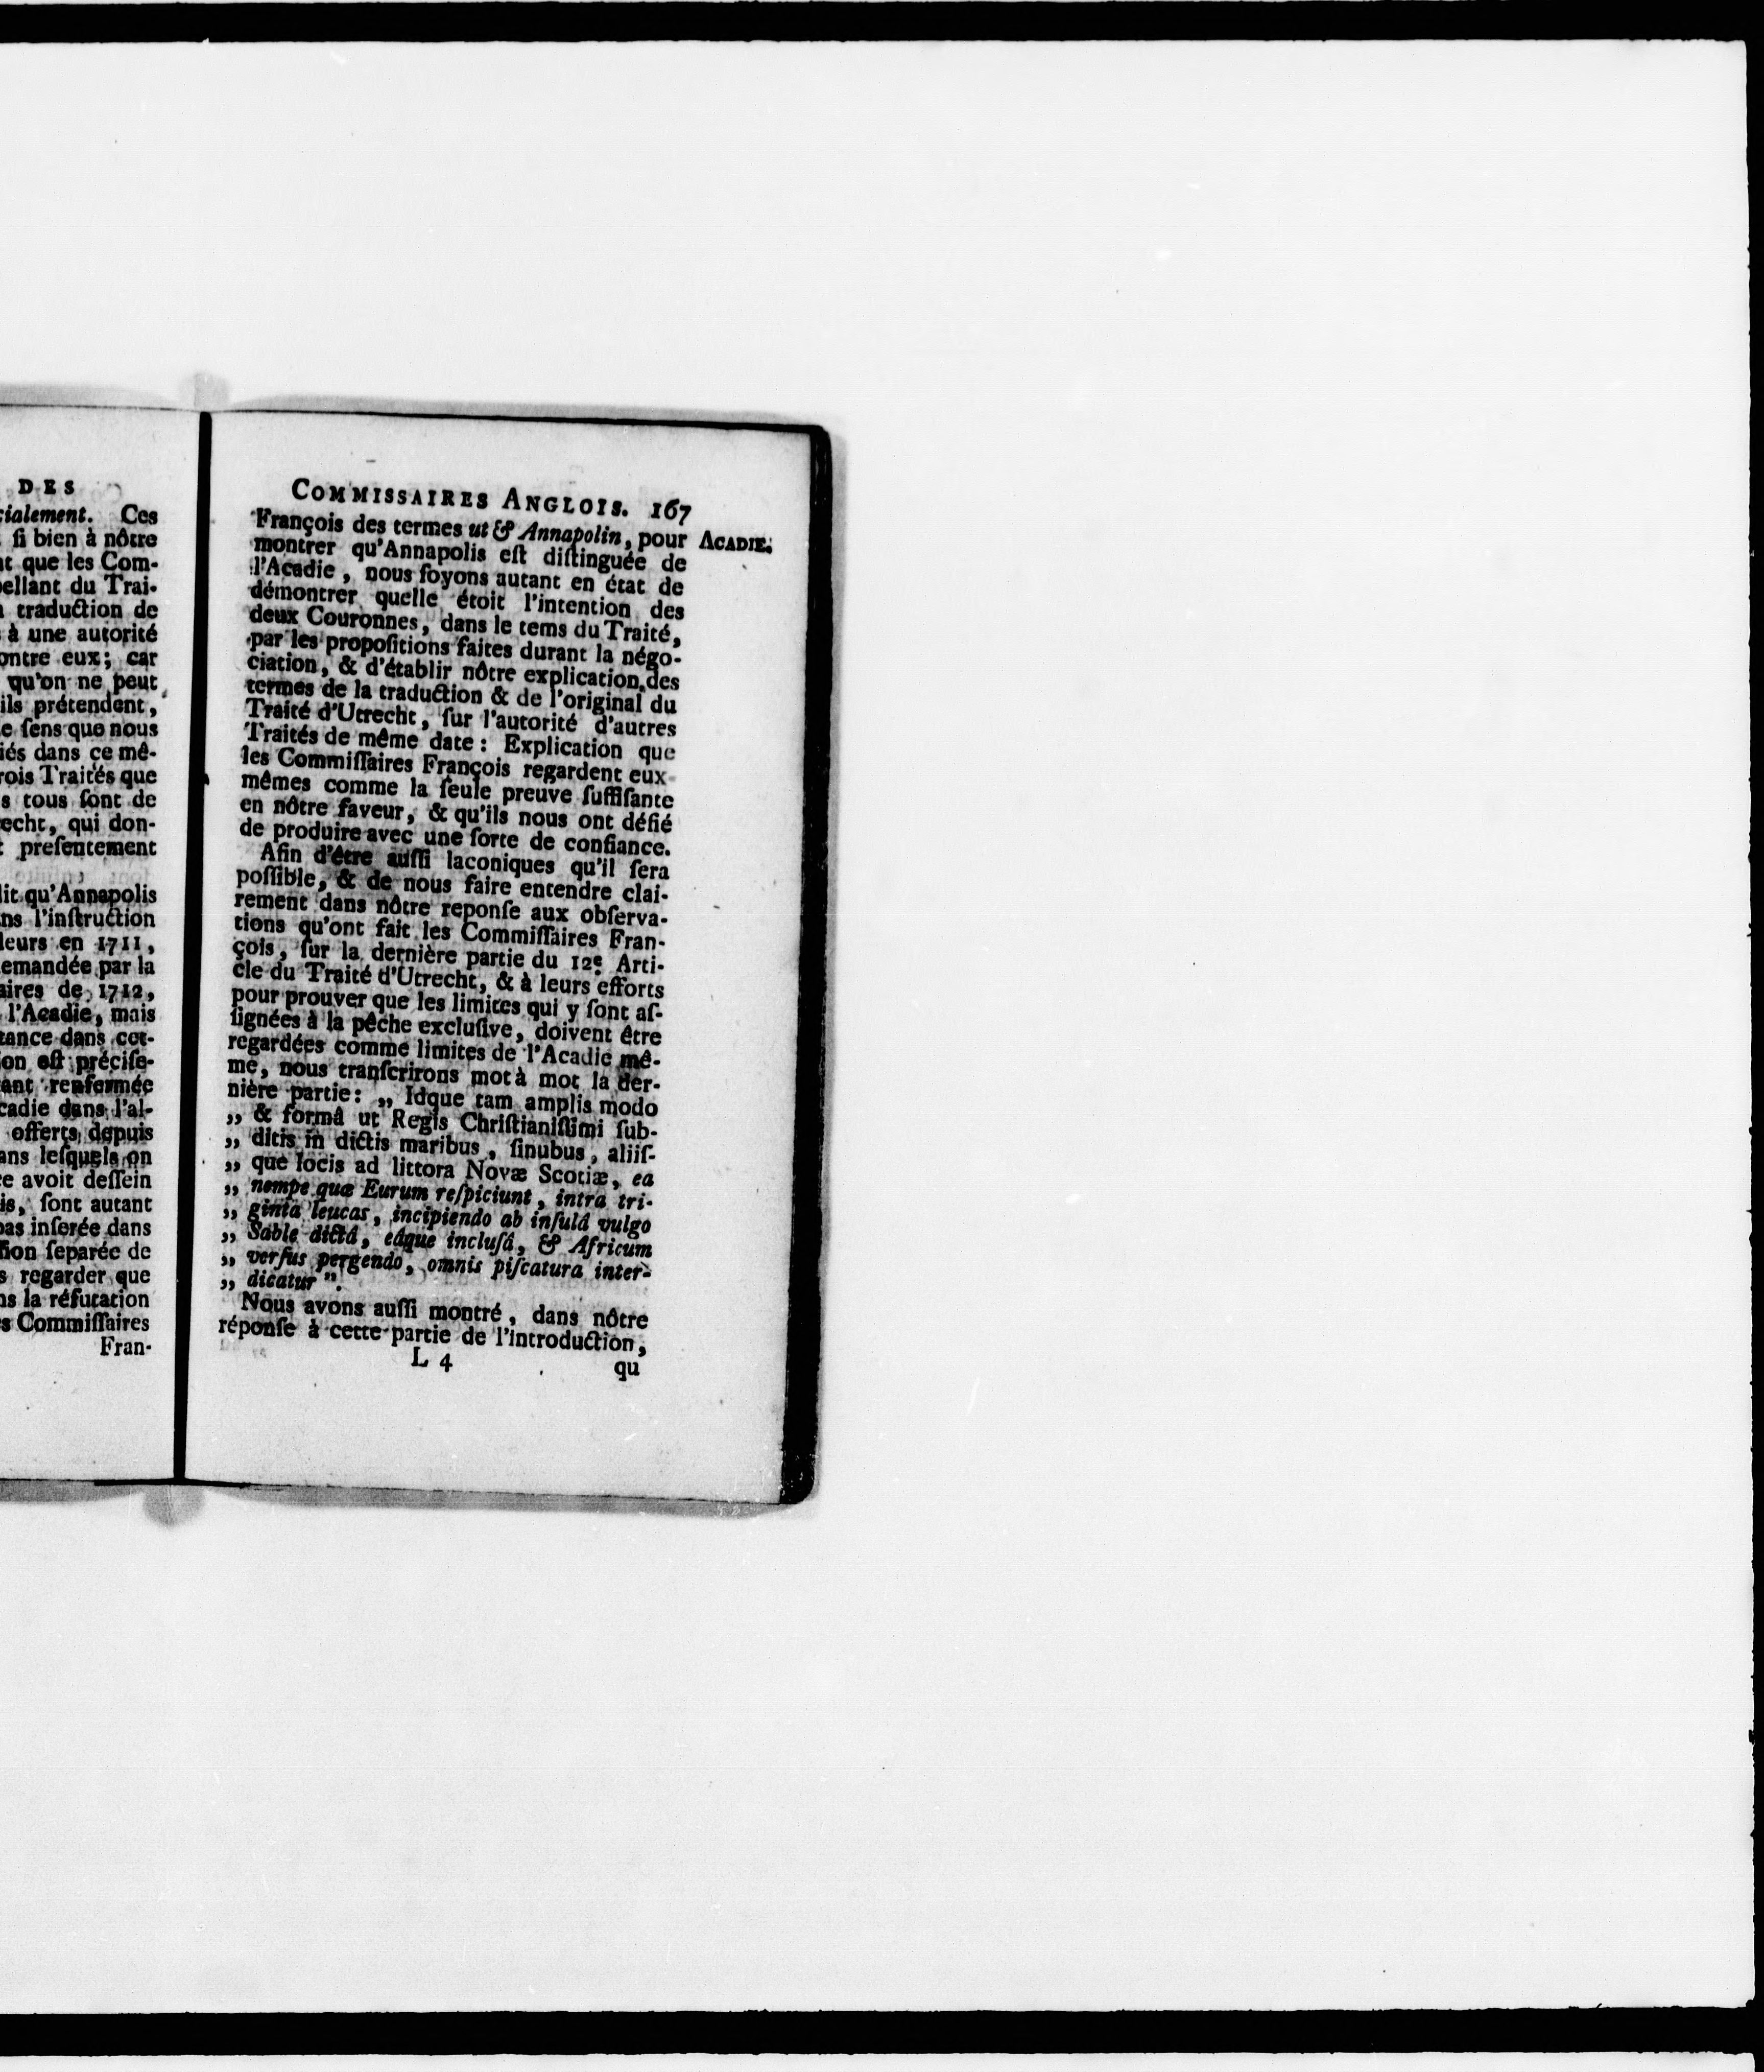 DES
cialement. Ces
si bien à nôtre
nt que les Com-
pellant du Trai-
traduction de
à une autorité
ontre eux; car
qu'on ne peut
ils prétendent,
e sens que nous
iés dans ce mê-
rois Traités que
s tous sont de
echt, qui don-
t presentement
lit qu'Annapolis
ns l'instruction
leurs en 1711,
emandée par la
aires de 1712,
l'Acadie, mais
tance dans cet-
on est précise-
ant renfermée
cadie dans l'al-
offerts depuis
ans lesquels on
ce avoit dessein
is, sont autant
pas inserée dans
sion separée de
s regarder que
ns la réfutation
s Commissaires
Fran-
COMMISSAIRES ANGLOIS. 167
ACADIE.
François des termes ut & Annapolin, pour
montrer qu'Annapolis eſt diſtinguée de
l'Acadie, nous ſoyons autant en état de
démontrer quelle étoit l'intention des
deux Couronnes, dans le tems du Traité,
par les propoſitions faites durant la négo-
ciation, & d'établir nôtre explication des
termes de la traduction & de l'original du
Traité d'Utrecht, ſur l'autorité d'autres
Traités de même date: Explication que
les Commiſſaires François regardent eux-
mêmes comme la ſeule preuve ſuffiſante
en nôtre faveur, & qu'ils nous ont défié
de produire avec une ſorte de confiance.
Afin d'être auſſi laconiques qu'il ſera
poſſible, & de nous faire entendre clai-
rement dans nôtre reponſe aux obſerva-
tions qu'ont fait les Commiſſaires Fran-
çois, ſur la dernière partie du 12e Arti-
cle du Traité d'Utrecht, & à leurs efforts
pour prouver que les limites qui y ſont aſ-
ſignées à la pêche excluſive, doivent être
regardées comme limites de l'Acadie mê-
me, nous tranſcrirons mot à mot la der-
nière partie: „ Idque tam amplis modo
„ & formâ ut Regis Chriſtianiſſimi ſub-
„ ditis in dictis maribus, ſinubus, aliiſ-
„ que locis ad littora Novæ Scotiæ, ea
„ nempe quæ Eurum reſpiciunt, intra tri-
„ ginta leucas, incipiendo ab inſulâ vulgo
„ Sable dictâ, eâque incluſâ, & Africum
„ verſus pergendo, omnis piſcatura inter-
„ dicatur ”.
Nous avons auſſi montré, dans nôtre
réponſe à cette partie de l'introduction,
L 4 qu